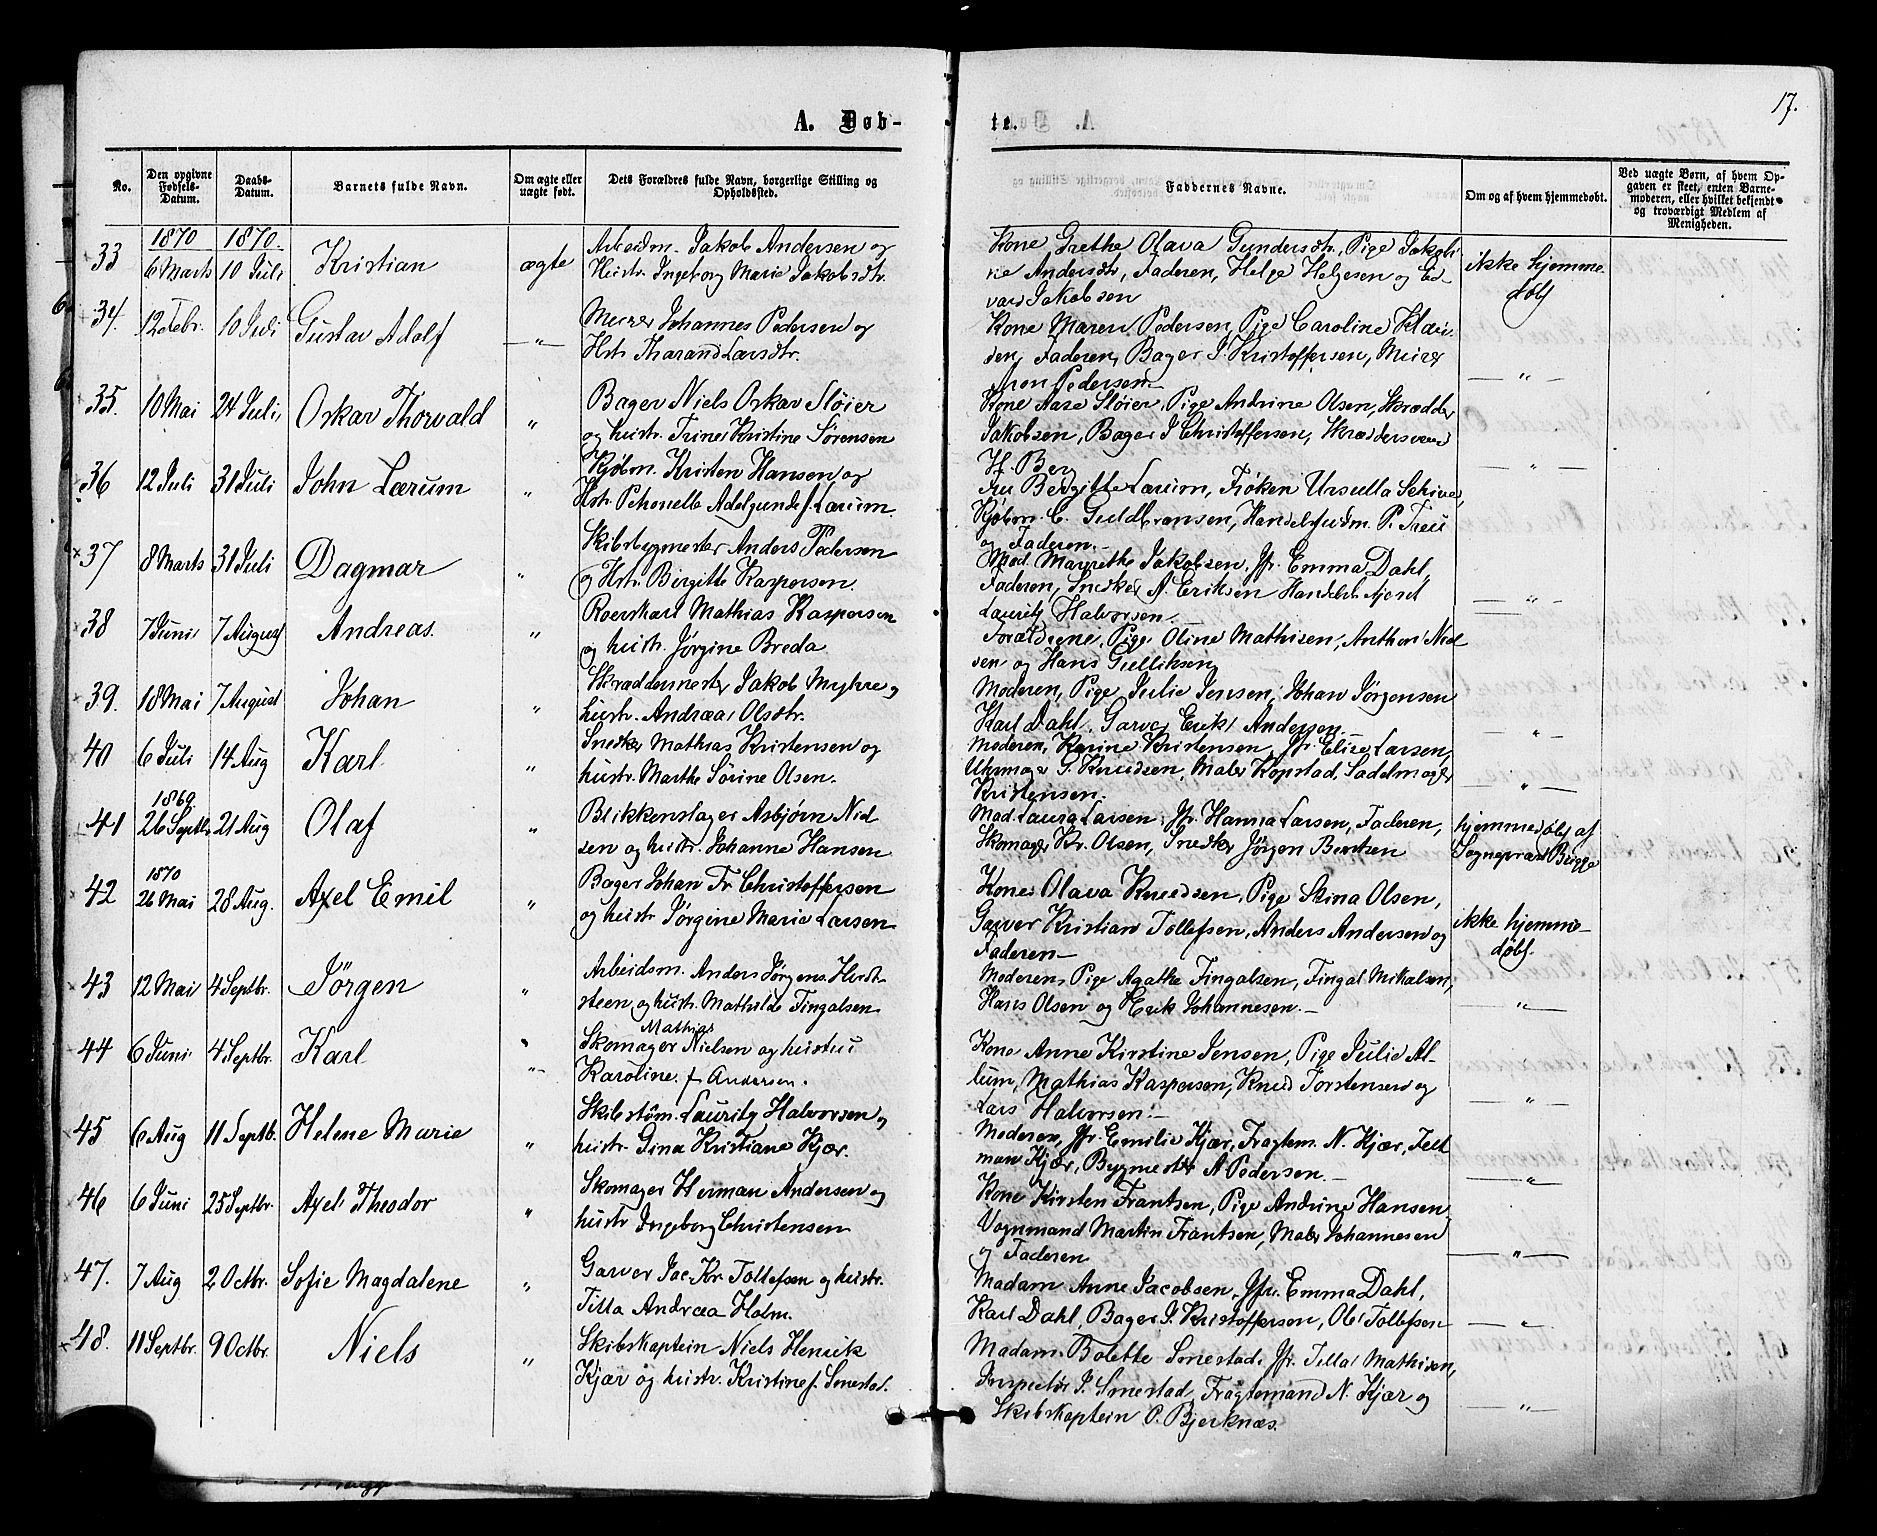 17.
A. Døb-
te.
No.
Den opgivne Fødsels-Datum.
Daabs-Datum.
Barnets fulde Navn.
Om ægte eller uægte født.
Dets Forældres fulde Navn, borgerlige Stilling og Opholdssted.
Faddernes Navne.
Om og af hvem hjemmedøbt.
Ved uægte Børn, af hvem Opgaven er skeet, enten Barnemoderen, eller hvilket bekjendt og troværdigt Medlem af Menigheden.
1870 1870
33 6 Marts 10 Juli Kristian ægte
Arbeidm. Jakob Andersen og
Hustr. Ingeborg Marie Jakobsdtr.
Kone Grethe Olava Gundersdtr, Pige Jakobi-
ne Andersdtr, Faderen, Helge Helgesen og Ed-
vard Jakobsen
ikke hjemme
døbt
34. 12 Febr. 10 Juli Gustav Adolf — " —
Murer Johannes Pedersen og
Hstr. Tharand Larsdtr.
Kone Maren Pedersen, Pige Caroline
Faderen, Bager J. Kristoffersen, Murer
Aron Pedersen
— " —
35. 10 Mai 24 Juli, Oskar Thorvald "
Bager Niels Oskar Sløier
og hustr. Trine Kristine Sørensen
Kone Aase Sløier, Pige Andrine Olsen, Skrædder
Jakobsen, Bager J Christoffersen, Skræddersvend
H. Berg
— " —
36 12 Juli 31 Juli John Lærum "
Kjøbm. Kristen Hansen og
Hstr. Petronelle Adelgunde f. Lærum.
Fru Bergitte Lærum, Frøken Ursulla Schive,
Kjøbm. C. Guldbransen, Handelsfuldm. P. Treu
og Faderen.—
37 8 Marts 31 Juli Dagmar "
Skibsbygmester Anders Pedersen
og Hstr. Birgitte Kaspersen.
Mad. Margrethe Jakobsen, Jfr. Emma Dahl,
Faderen, Snedker A. Eriksen Handelsbetjent
Lauritz Halvorsen.
— " —
38 7 Juni 7 August Andreas. "
Roerskarl Mathias Kaspersen
og hustr. Jørgine Breda
Forældrene, Pige Oline Mathisen, Anthon Niel
sen og Hans Gulliksen
39. 18 Mai 7 August Johan "
Skræddermester Jakob Myhre og
hustr. Andrea Olsdtr.
Moderen, Pige Julie Jensen, Johan Jørgensen
Karl Dahl, Garver Erik Andersen
— " —
40 6 Juli 14 Aug Karl "
Snedker Mathias Kristensen og
hustr. Marthe Sørine Olsen.
Moderen, Karine Kristensen, Jfr. Elise Larsen,
Uhrmager G. Knudsen, Maler Kopstad, Sadelmager
Kristensen.
— " —
1869.
41 26 Septbr 21 Aug Olaf "
Blikkenslager Asbjørn Niel
sen og hustr. Johanne Hansen
Mad. Laura Larsen, Jfr. Hanna Larsen, Faderen,
Skomager Kr. Olsen, Snedker Jørgen Berntsen
hjemmedøbt af
Sognepræst Brügge
1870
42 26 Mai 28 Aug. Axel Emil "
Bager Johan Fr Christoffersen
og hustr Jørgine Marie Larsen
Kone Olava Knudsen, Pige Stina Olsen,
Garver Kristian Tollefsen, Anders Andersen og
Faderen—
ikke hjemme-
døbt.
43 12 Mai 4 Septbr. Jørgen "
Arbeidsm. Anders Jørgens. Hvidt-
steen og hustr. Mathilde Fingalsen
Moderen, Pige Agathe Fingalsen, Fingal Mikalsen,
Hans Olsen og Erik Johannesen.—
— " —
44 6 Juni 4 Septbr. Karl "
Mathias
Skomager Nielsen og hustru
Karoline f. Andersen.
Kone Anne Kirstine Jensen, Pige Julie Al-
lum, Mathias Kaspersen, Knud Torstensen og
Lars Halvorsen.—
— " —
45 6 Aug 11 Septb. Helene Marie "
Skibstøm. Lauritz Halvorsen og
hustr. Gina Kristiane Kjær.
Moderen, Jfr. Emilie Kjær, Fragtem. N. Kjær, Telt
man Kjær, Bygmester A Pedersen.—
— " —
46 6 Juni 25 Septbr. Axel Theodor "
Skomager Herman Andersen og
hustr Ingeborg Christensen
Kone Kirsten Frantsen, Pige Andrine Hansen
Vognmand Martin Frantsen, Maler Johannesen
og Faderen
— " —
47. 7 Aug 2 Octbr. Sofie Magdalene "
Garver Jac. Kr. Tollefsen og hustr.
Tilla Andrea Holm.
Madam Anne Jacobsen, Jfr. Emma Dahl,
Karl Dahl, Bager J. Kristoffersen, Ole Tollefsen
— " —
48. 11 Septbr. 9 Octbr. Niels "
Skibskaptein Niels Henrik
Kjær og hustr. Kristine f. Smestad.
Madam Bolette Smestad, Jfr. Tilla Mathisen,
Inspectør J. Smestad, Fragtemand N. Kjær og
Skibskaptein P. Bjerknæs.
— " —